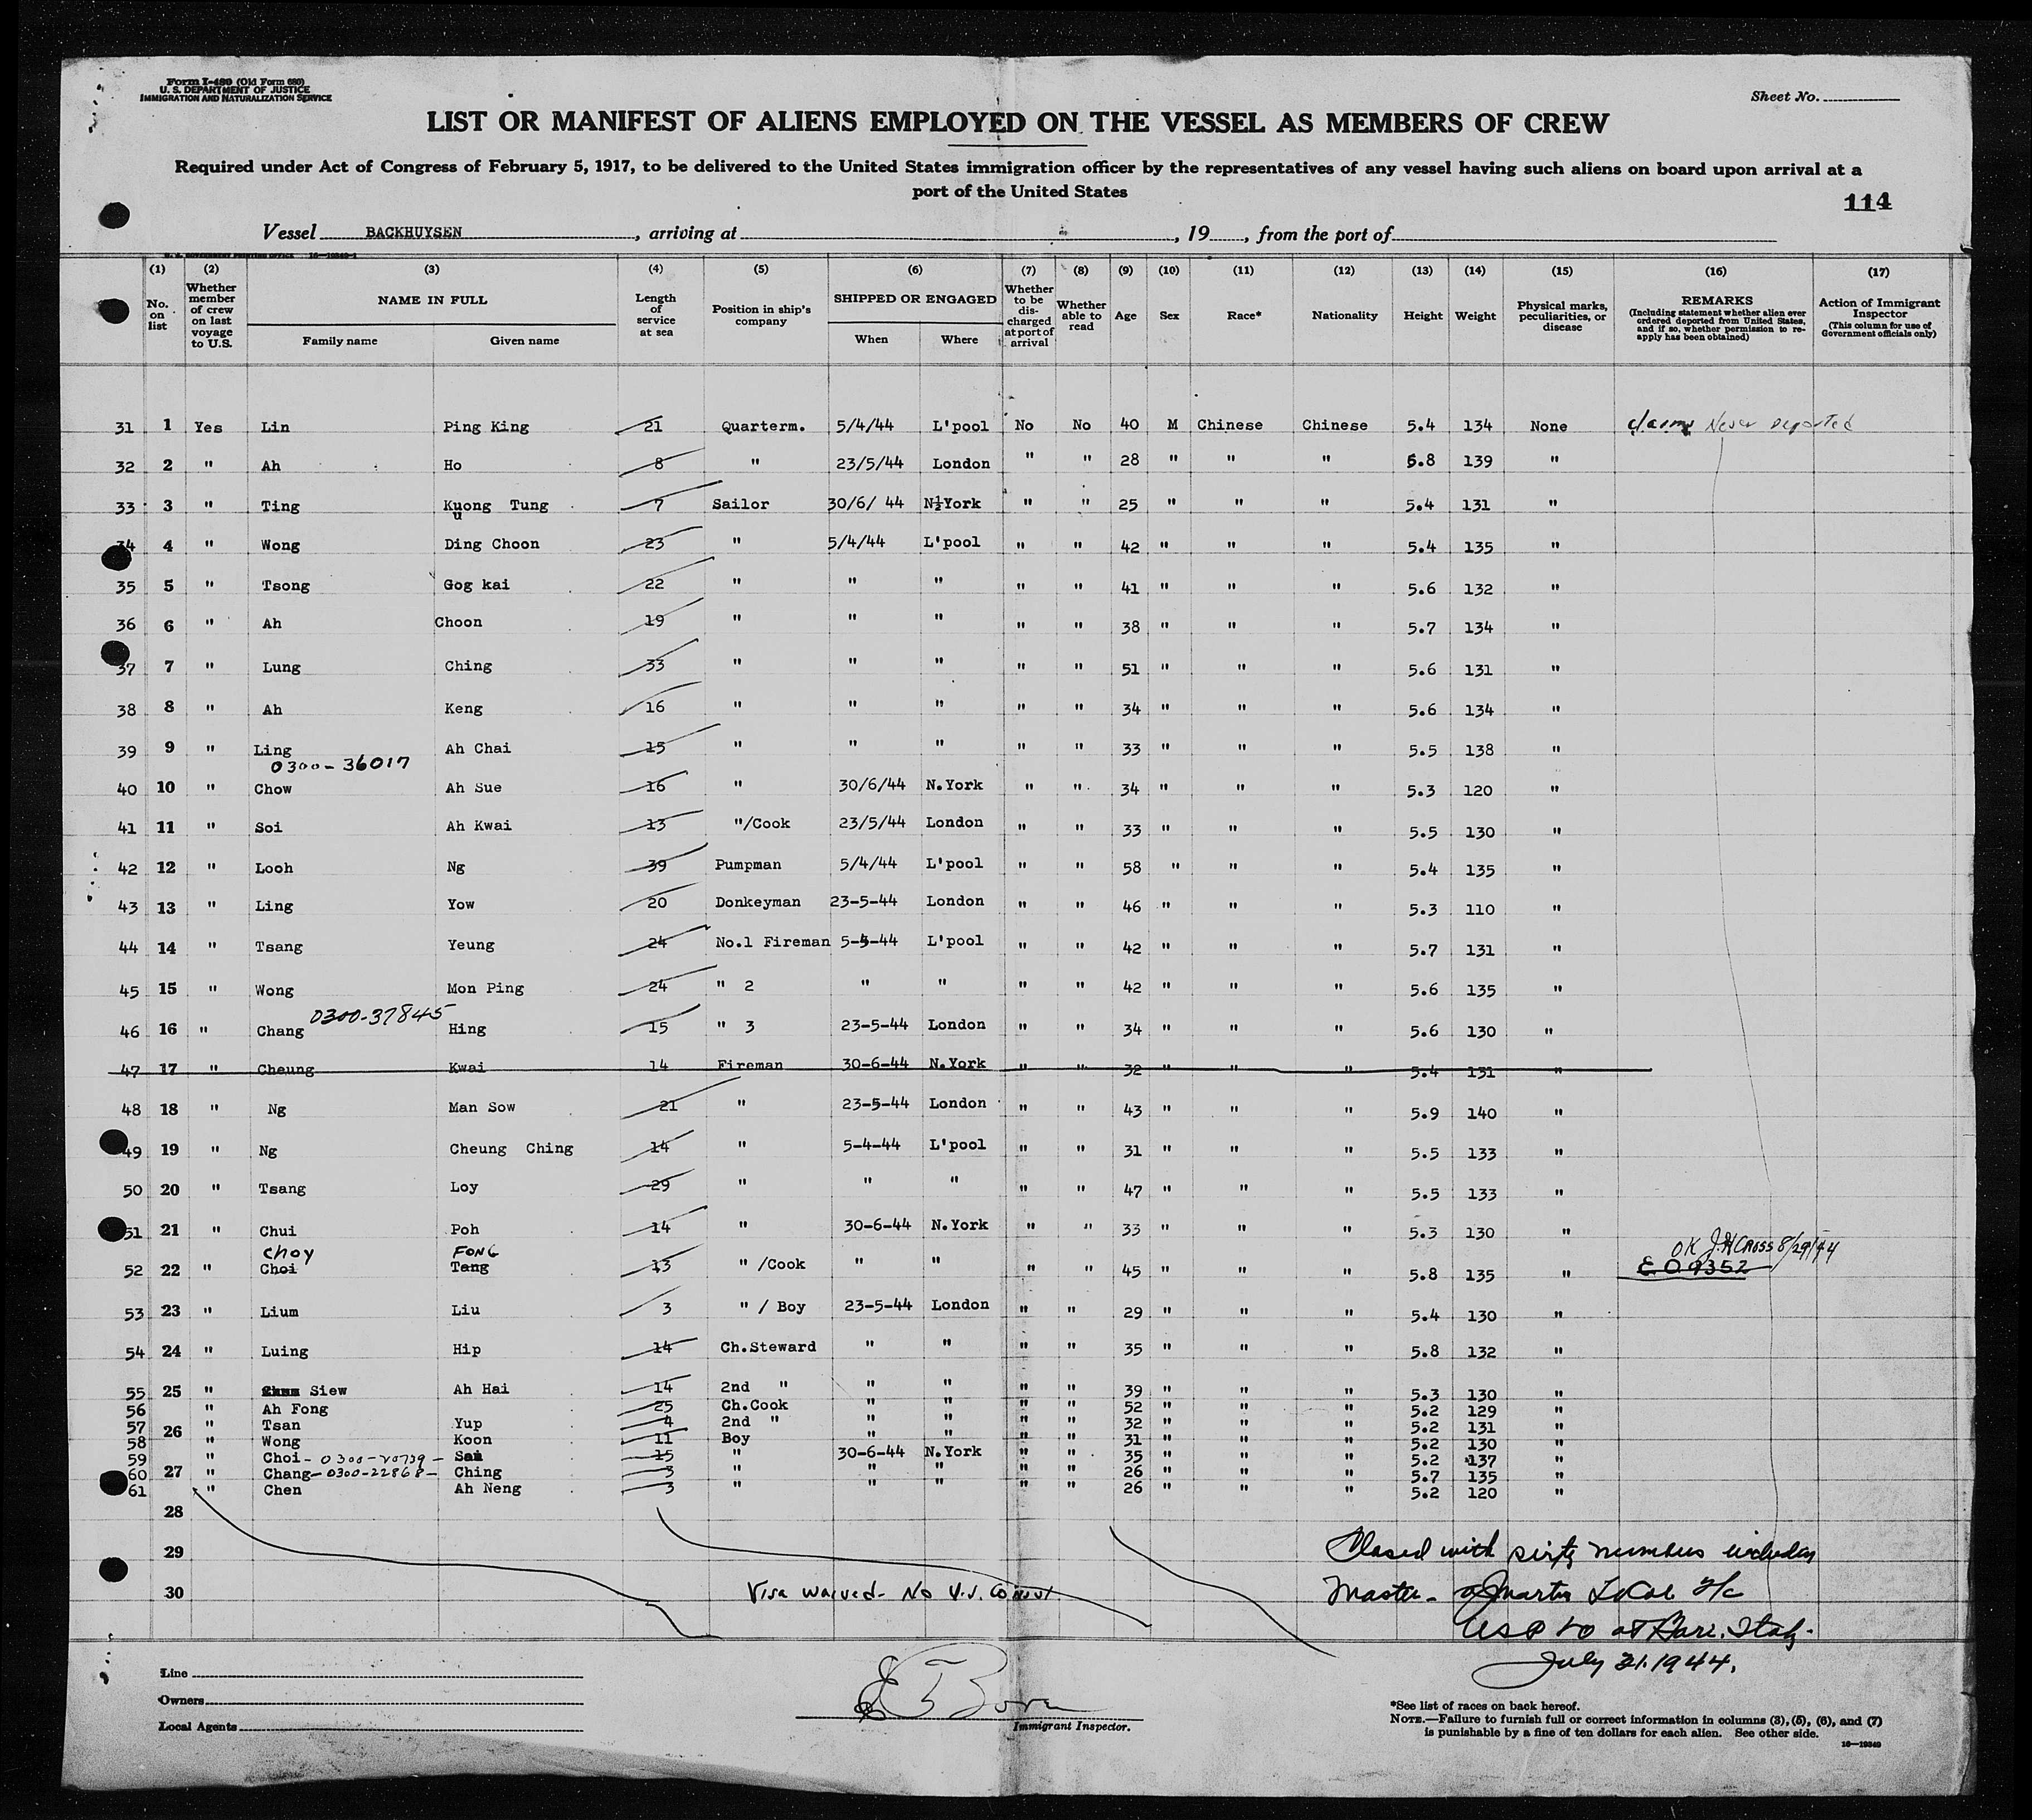 Form I-480 (Old Form 680)
U. S. DEPARTMENT OF JUSTICE
IMMIGRATION AND NATURALIZATION SERVICE
Sheet No.
LIST OR MANIFEST OF ALIENS EMPLOYED ON THE VESSEL AS MEMBERS OF CREW
Required under Act of Congress of February 5, 1917, to be delivered to the United States immigration officer by the representatives of any vessel having such aliens on board upon arrival at a
port of the United States
114
Vessel BACKHUYSEN, arriving at , 19 , from the port of
U. S. GOVERNMENT PRINTING OFFICE 16—19349-1
(1) (2) (3) (4) (5) (6) (7) (8) (9) (10) (11) (12) (13) (14) (15) (16) (17)
No. on list
Whether member of crew on last voyage to U.S.
NAME IN FULL
Family name
Given name
Length of service at sea
Position in ship's company
SHIPPED OR ENGAGED
When
Where
Whether to be discharged at port of arrival
Whether able to read
Age
Sex
Race*
Nationality
Height
Weight
Physical marks, peculiarities, or disease
REMARKS
(Including statement whether alien ever ordered deported from United States, and if so, whether permission to reapply has been obtained)
Action of Immigrant Inspector
(This column for use of Government officials only)
31 1 Yes Lin Ping King 21 Quarterm. 5/4/44 L'pool No No 40 M Chinese Chinese 5.4 134 None claims Never Deported
32 2 " Ah Ho 8 " 23/5/44 London " " 28 " " " 5.8 139 "
33 3 " Ting Kuong Tung 7 Sailor 30/6/ 44 N½York " " 25 " " " 5.4 131 "
u
34 4 " Wong Ding Choon 23 " 5/4/44 L'pool " " 42 " " " 5.4 135 "
35 5 " Tsong Gog kai 22 " " " " " 41 " " " 5.6 132 "
36 6 " Ah Choon 19 " " " " " 38 " " " 5.7 134 "
37 7 " Lung Ching 33 " " " " " 51 " " " 5.6 131 "
38 8 " Ah Keng 16 " " " " " 34 " " " 5.6 134 "
39 9 " Ling Ah Chai 15 " " " " " 33 " " " 5.5 138 "
0300-36017
40 10 " Chow Ah Sue 16 " 30/6/44 N.York " " 34 " " " 5.3 120 "
41 11 " Soi Ah Kwai 13 "/Cook 23/5/44 London " " 33 " " " 5.5 130 "
42 12 " Looh Ng 39 Pumpman 5/4/44 L'pool " " 58 " " " 5.4 135 "
43 13 " Ling Yow 20 Donkeyman 23-5-44 London " " 46 " " " 5.3 110 "
44 14 " Tsang Yeung 24 No.1 Fireman 5-5-44 L'pool " " 42 " " " 5.7 131 "
45 15 " Wong Mon Ping 24 " 2 " " " " 42 " " " 5.6 135 "
0300-37845
46 16 " Chang Hing 15 " 3 23-5-44 London " " 34 " " " 5.6 130 "
47 17 " Cheung Kwai 14 Fireman 30-6-44 N.York " " 32 " " " 5.4 131 "
48 18 " Ng Man Sow 21 " 23-5-44 London " " 43 " " " 5.9 140 "
49 19 " Ng Cheung Ching 14 " 5-4-44 L'pool " " 31 " " " 5.5 133 "
50 20 " Tsang Loy 29 " " " " " 47 " " " 5.5 133 "
51 21 " Chui Poh 14 " 30-6-44 N.York " " 33 " " " 5.3 130 "
Choy FONG OK J.H CROSS 8/29/44
52 22 " Choi Tang 13 " /Cook " " " " 45 " " " 5.8 135 " E O 9352
53 23 " Lium Liu 3 " / Boy 23-5-44 London " " 29 " " " 5.4 130 "
54 24 " Luing Hip 14 Ch.Steward " " " " 35 " " " 5.8 132 "
55 25 " Siew Ah Hai 14 2nd " " " " " 39 " " " 5.3 130 "
56 " Ah Fong 25 Ch.Cook " " " " 52 " " " 5.2 129 "
57 26 " Tsan Yup 4 2nd " " " " " 32 " " " 5.2 131 "
58 " Wong Koon 11 Boy " " " " 31 " " " 5.2 130 "
59 " Choi - 0300-20739 - Sai 15 " 30-6-44 N.York " " 35 " " " 5.2 137 "
60 27 " Chang - 0300-22868 - Ching 3 " " " " " 26 " " " 5.7 135 "
61 " Chen Ah Neng 3 " " " " " 26 " " " 5.2 120 "
28
29
30
Visa waived - No U.S. Consul
Closed with sixty numbers includes
Master -
at Bari. Italy.
July 31.1944.
Line
Owners
Local Agents
Immigrant Inspector.
*See list of races on back hereof.
NOTE.—Failure to furnish full or correct information in columns (3), (5), (6), and (7)
is punishable by a fine of ten dollars for each alien. See other side.
16—19349